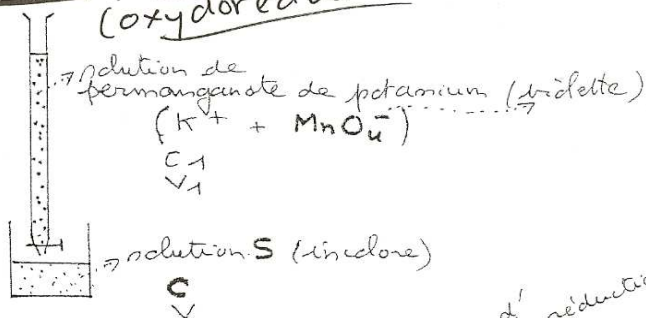 (oxydoréd
solution de
permanganate de potassium (violette)
(K+ + MnO4-)
C1
V1
solution S (incolore)
C
V
d' réductio